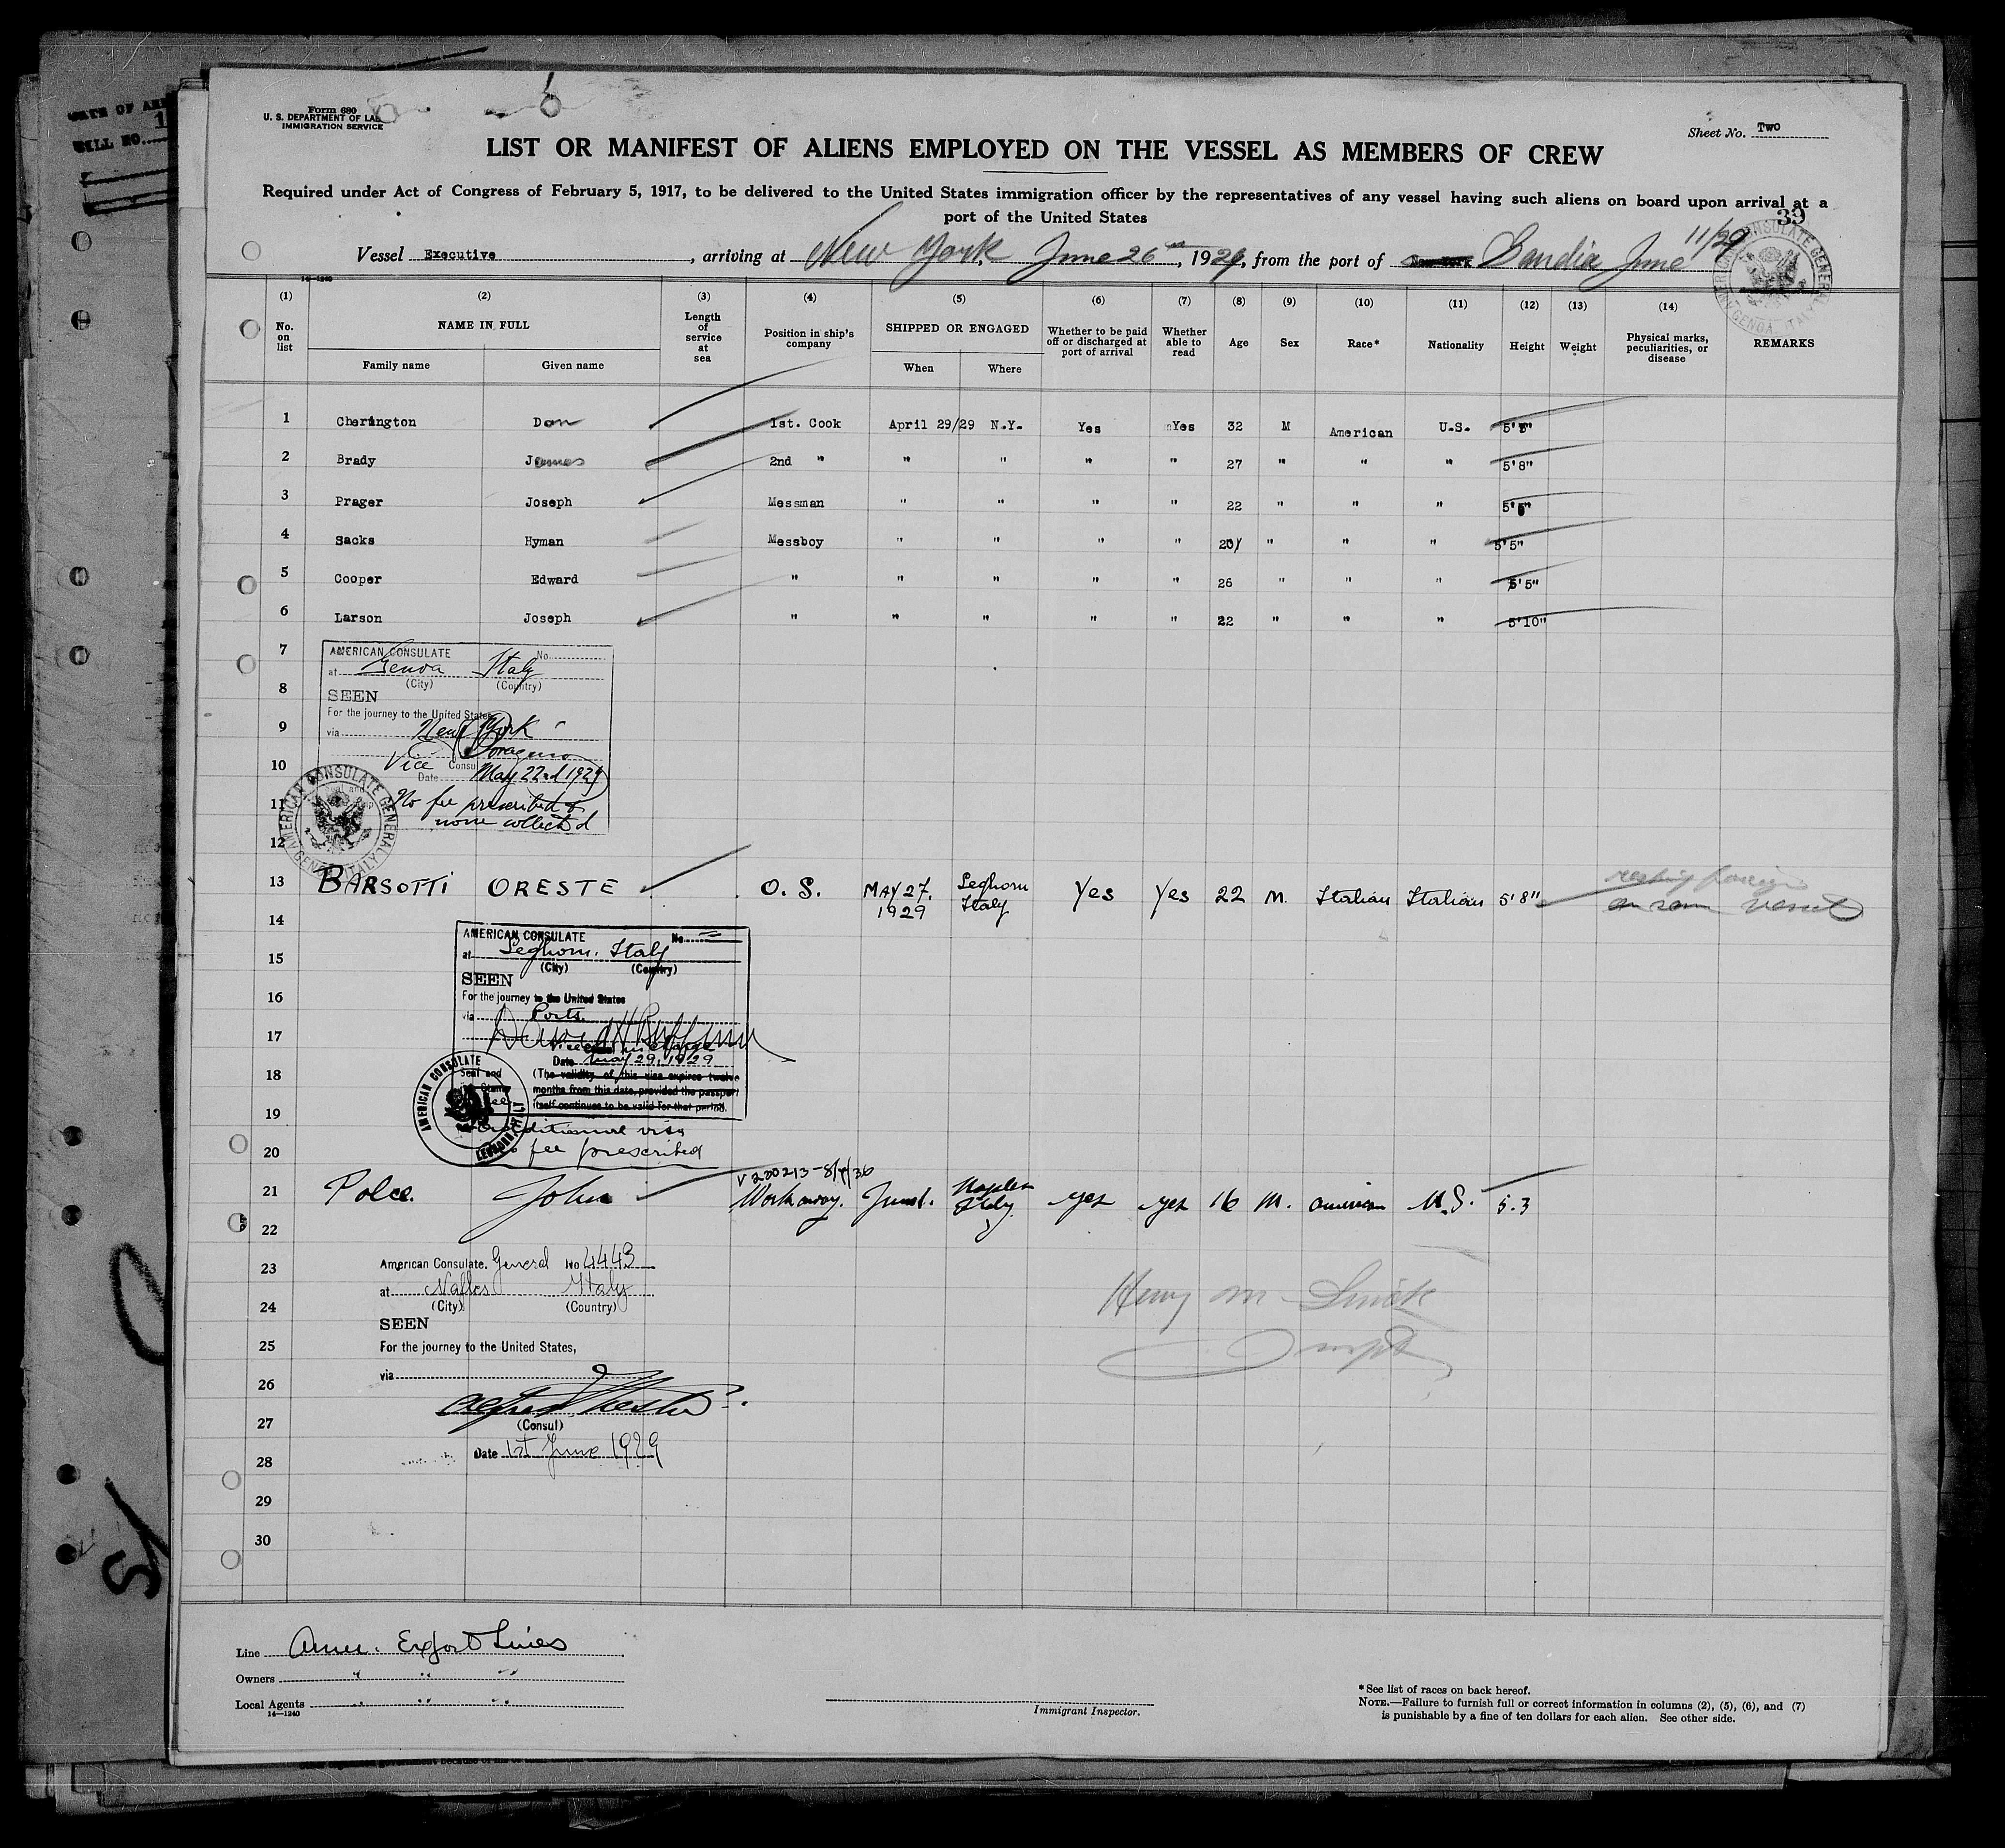 DATE OF
BILL NO.
Form 680
U. S. DEPARTMENT OF
IMMIGRATION SERVICE
Sheet No. Two
LIST OR MANIFEST OF ALIENS EMPLOYED ON THE VESSEL AS MEMBERS OF CREW
Required under Act of Congress of February 5, 1917, to be delivered to the United States immigration officer by the representatives of any vessel having such aliens on board upon arrival at a
port of the United States
39
Vessel Executive, arriving at New York, June 26th, 1929, from the port of Candia June 11/29
AMERICAN CONSULATE GENERAL GENOA, ITALY
14-1240
(1) (2) (3) (4) (5) (6) (7) (8) (9) (10) (11) (12) (13) (14)
No. on list NAME IN FULL Length of service at sea Position in ship's company SHIPPED OR ENGAGED Whether to be paid off or discharged at port of arrival Whether able to read Age Sex Race* Nationality Height Weight Physical marks, peculiarities, or disease REMARKS
Family name Given name When Where
1 Cherington Don 1st. Cook April 29/29 N.Y. Yes Yes 32 M American U.S. 5'5"
2 Brady James 2nd " " " " " 27 " " " 5'8"
3 Prager Joseph Messman " " " " 22 " " "
4 Sacks Hyman Messboy " " " " 20 " " " 5'5"
5 Cooper Edward " " " " " 26 " " " 5'5"
6 Larson Joseph " " " " " 22 " " " 5'10"
7
AMERICAN CONSULATE No.
at Genoa Italy
(City) (Country)
8
SEEN
For the journey to the United States
9
via New York
10
Vice Consul
Date May 22nd 1929
11
No fee prescribed
none collected
12
AMERICAN CONSULATE GENERAL GENOA, ITALY
13 BARSOTTI ORESTE O. S. MAY 27. 1929 Leghorn Italy Yes Yes 22 M. Italian Italian 5'8" vessel
14
AMERICAN CONSULATE No.
at Leghorn. Italy
15
(City) (Country)
SEEN
16
For the journey to the United States
via Ports.
17
Date May 29, 1929
18
Seal and
(The validity of this visa expires twelve
months from this date, provided the passport
itself continues to be valid for that period.
19
AMERICAN CONSULATE LEGHORN, ITALY
visa
20
fee prescribed
V220213-8/4/36
21 Polce. John Workaway. June 1. Naples Italy. yes yes 16 M. american U.S. 5.3
22
23
American Consulate. General No 4443
at Naples Italy
24
(City) (Country)
SEEN
25
For the journey to the United States,
via
26
27
(Consul)
Date 1st June 1929
28
29
30
Line Amer. Export Lines
Owners " " "
Local Agents " " "
14-1240
Immigrant Inspector.
*See list of races on back hereof.
NOTE.—Failure to furnish full or correct information in columns (2), (5), (6), and (7)
is punishable by a fine of ten dollars for each alien. See other side.